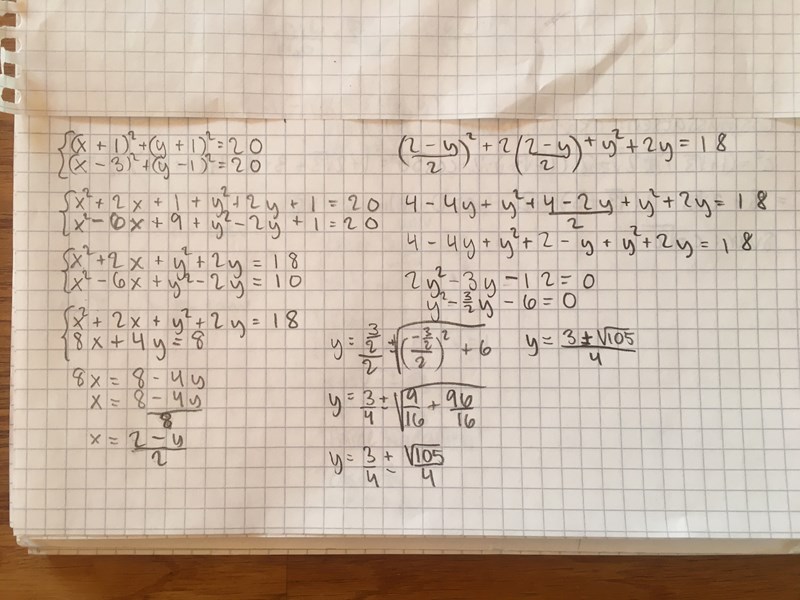 {(x + 1)² + (y + 1)² = 20
{(x - 3)² + (y - 1)² = 20
{x² + 2x + 1 + y² + 2y + 1 = 20
{x² - 6x + 9 + y² - 2y + 1 = 20
{x² + 2x + y² + 2y = 18
{x² - 6x + y² - 2y = 10
{x² + 2x + y² + 2y = 18
{8x + 4y = 8
8x = 8 - 4y
x = (8 - 4y)/8
x = (2 - y)/2
((2 - y)/2)² + 2((2 - y)/2) + y² + 2y = 18
4 - 4y + y² + (4 - 2y)/2 + y² + 2y = 18
4 - 4y + y² + 2 - y + y² + 2y = 18
2y² - 3y - 12 = 0
y² - 3/2 y - 6 = 0
y = (3/2)/2 ± √(((-3/2)/2)² + 6)
y = 3/4 ± √(9/16 + 96/16)
y = 3/4 ± √105/4
y = (3 ± √105)/4